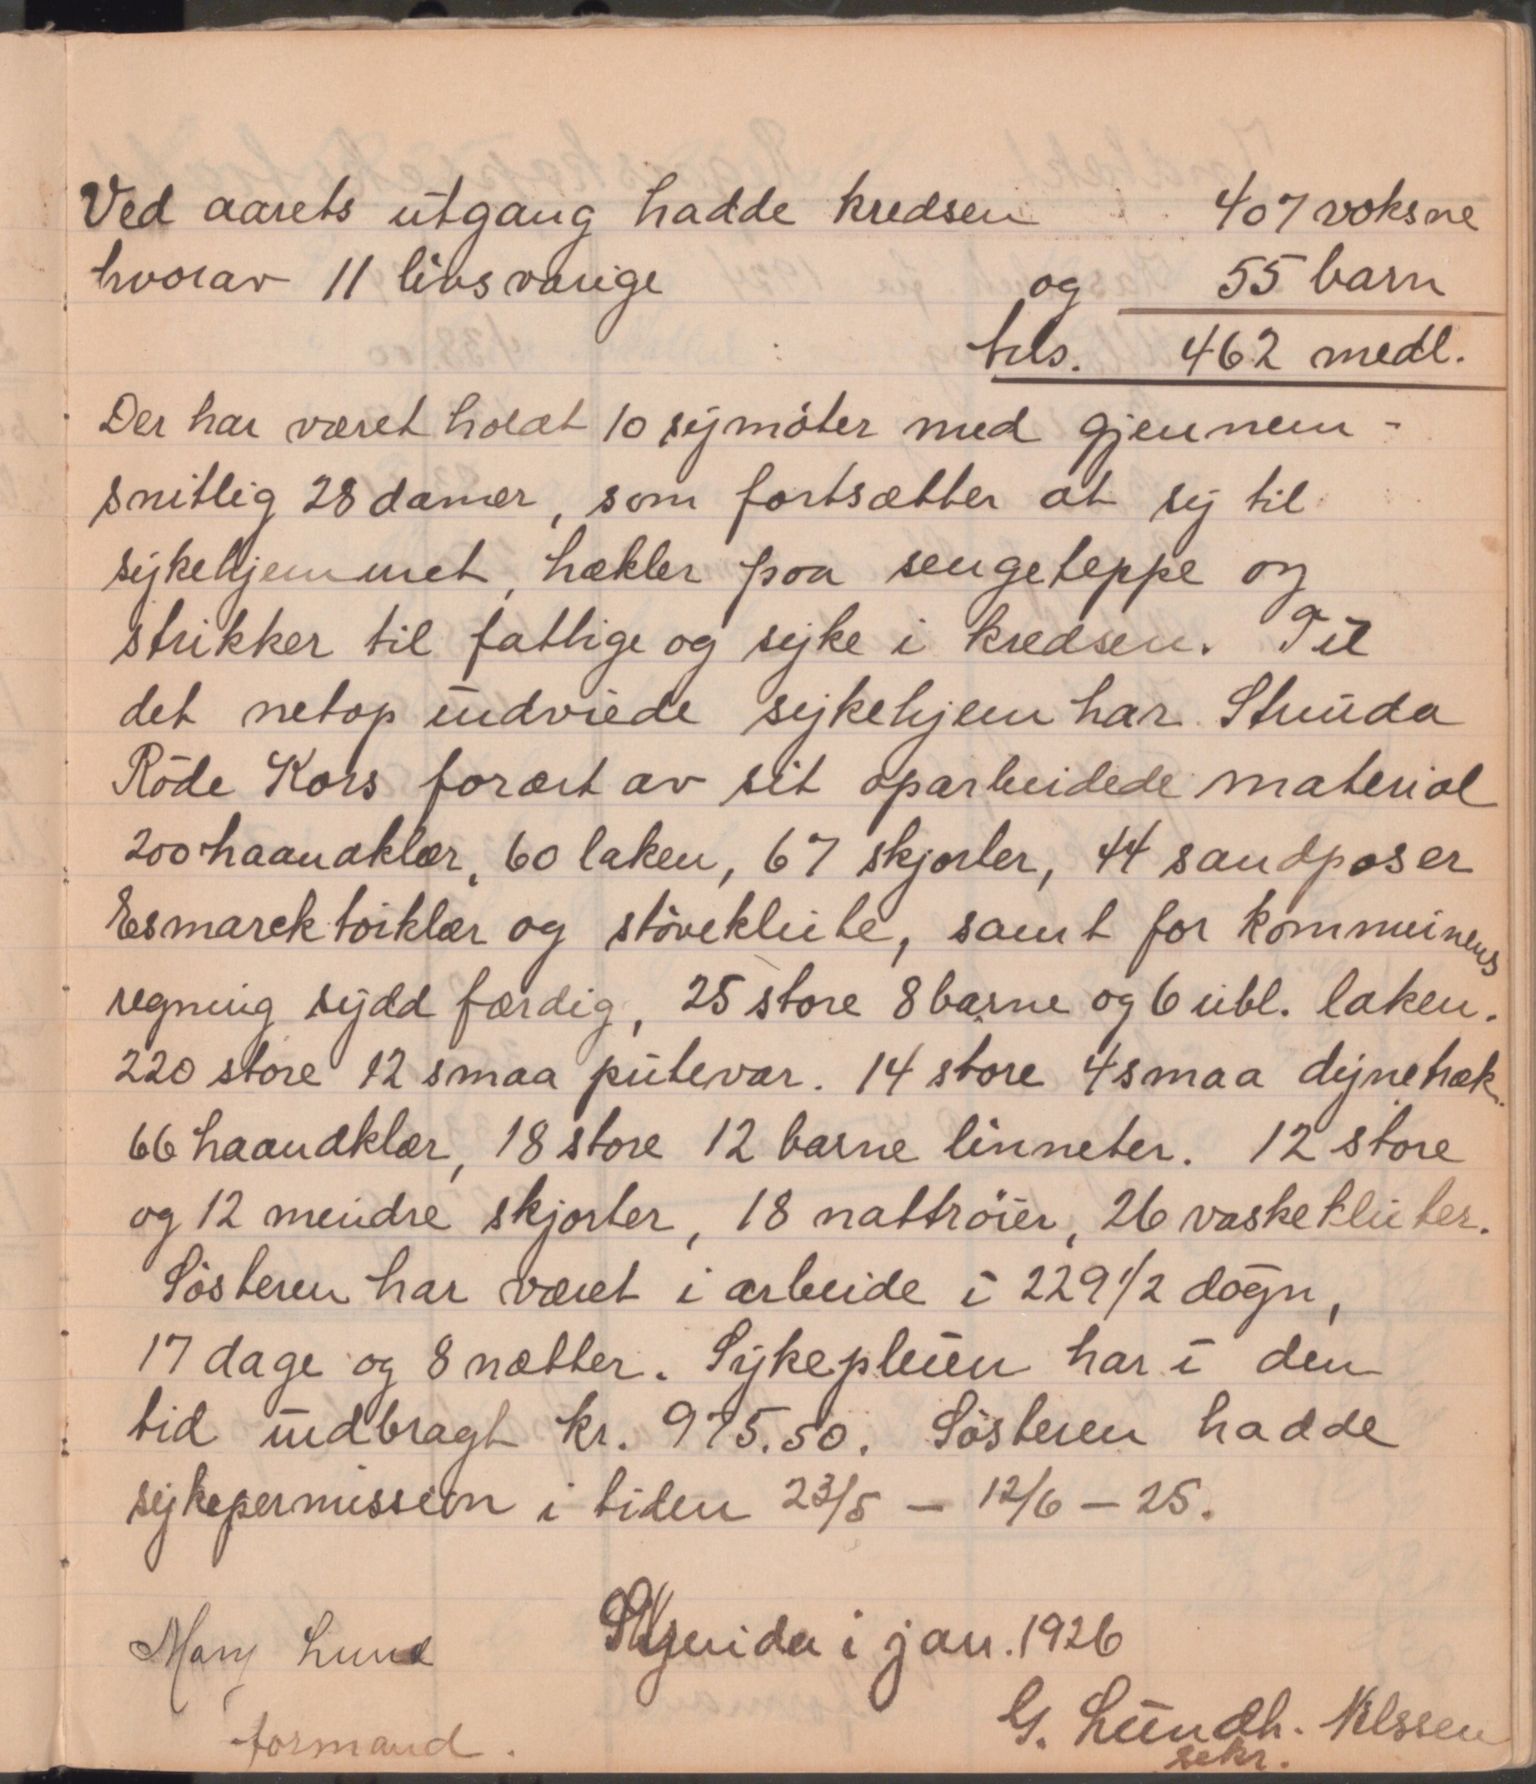 Ved aarets utgang hadde kredsen 407 voksne
hvorav 11 livsvarige og 55 barn
tils. 462 medl.
Der har været holdt 10 symöter med gjennem-
snitlig 28 damer, som fortsætter at sy til
sykehjemmet, hækler paa sengeteppe og
strikker til fattige og syke i kredsen. Til
det netop indviede sykehjem har Strinda
Röde Kors foræret av sit oparbeidede material
200 haandklær, 60 laken, 67 skjorter, 44 sandposer
Esmarck töiklær og stöveklute, samt for kommunens
regning sydd færdig, 25 store 8 barne og 6 ubl. laken.
220 store 12 smaa putevar. 14 store 4 smaa dynetræk.
66 haandklær, 18 store 12 barne linneter. 12 store
og 12 mindre skjorter, 18 nattröier, 26 vaskekluter.
Sösteren har været i arbeide i 229 1/2 dögn,
17 dage og 8 nætter. Sykepleien har i den
tid indbragt kr. 975.50. Sösteren hadde
sykepermission i tiden 23/5 – 12/6 – 25.
Strinda i jan. 1926
Mary Lund
formand.
G. Lundh. Nilssen
sekr.